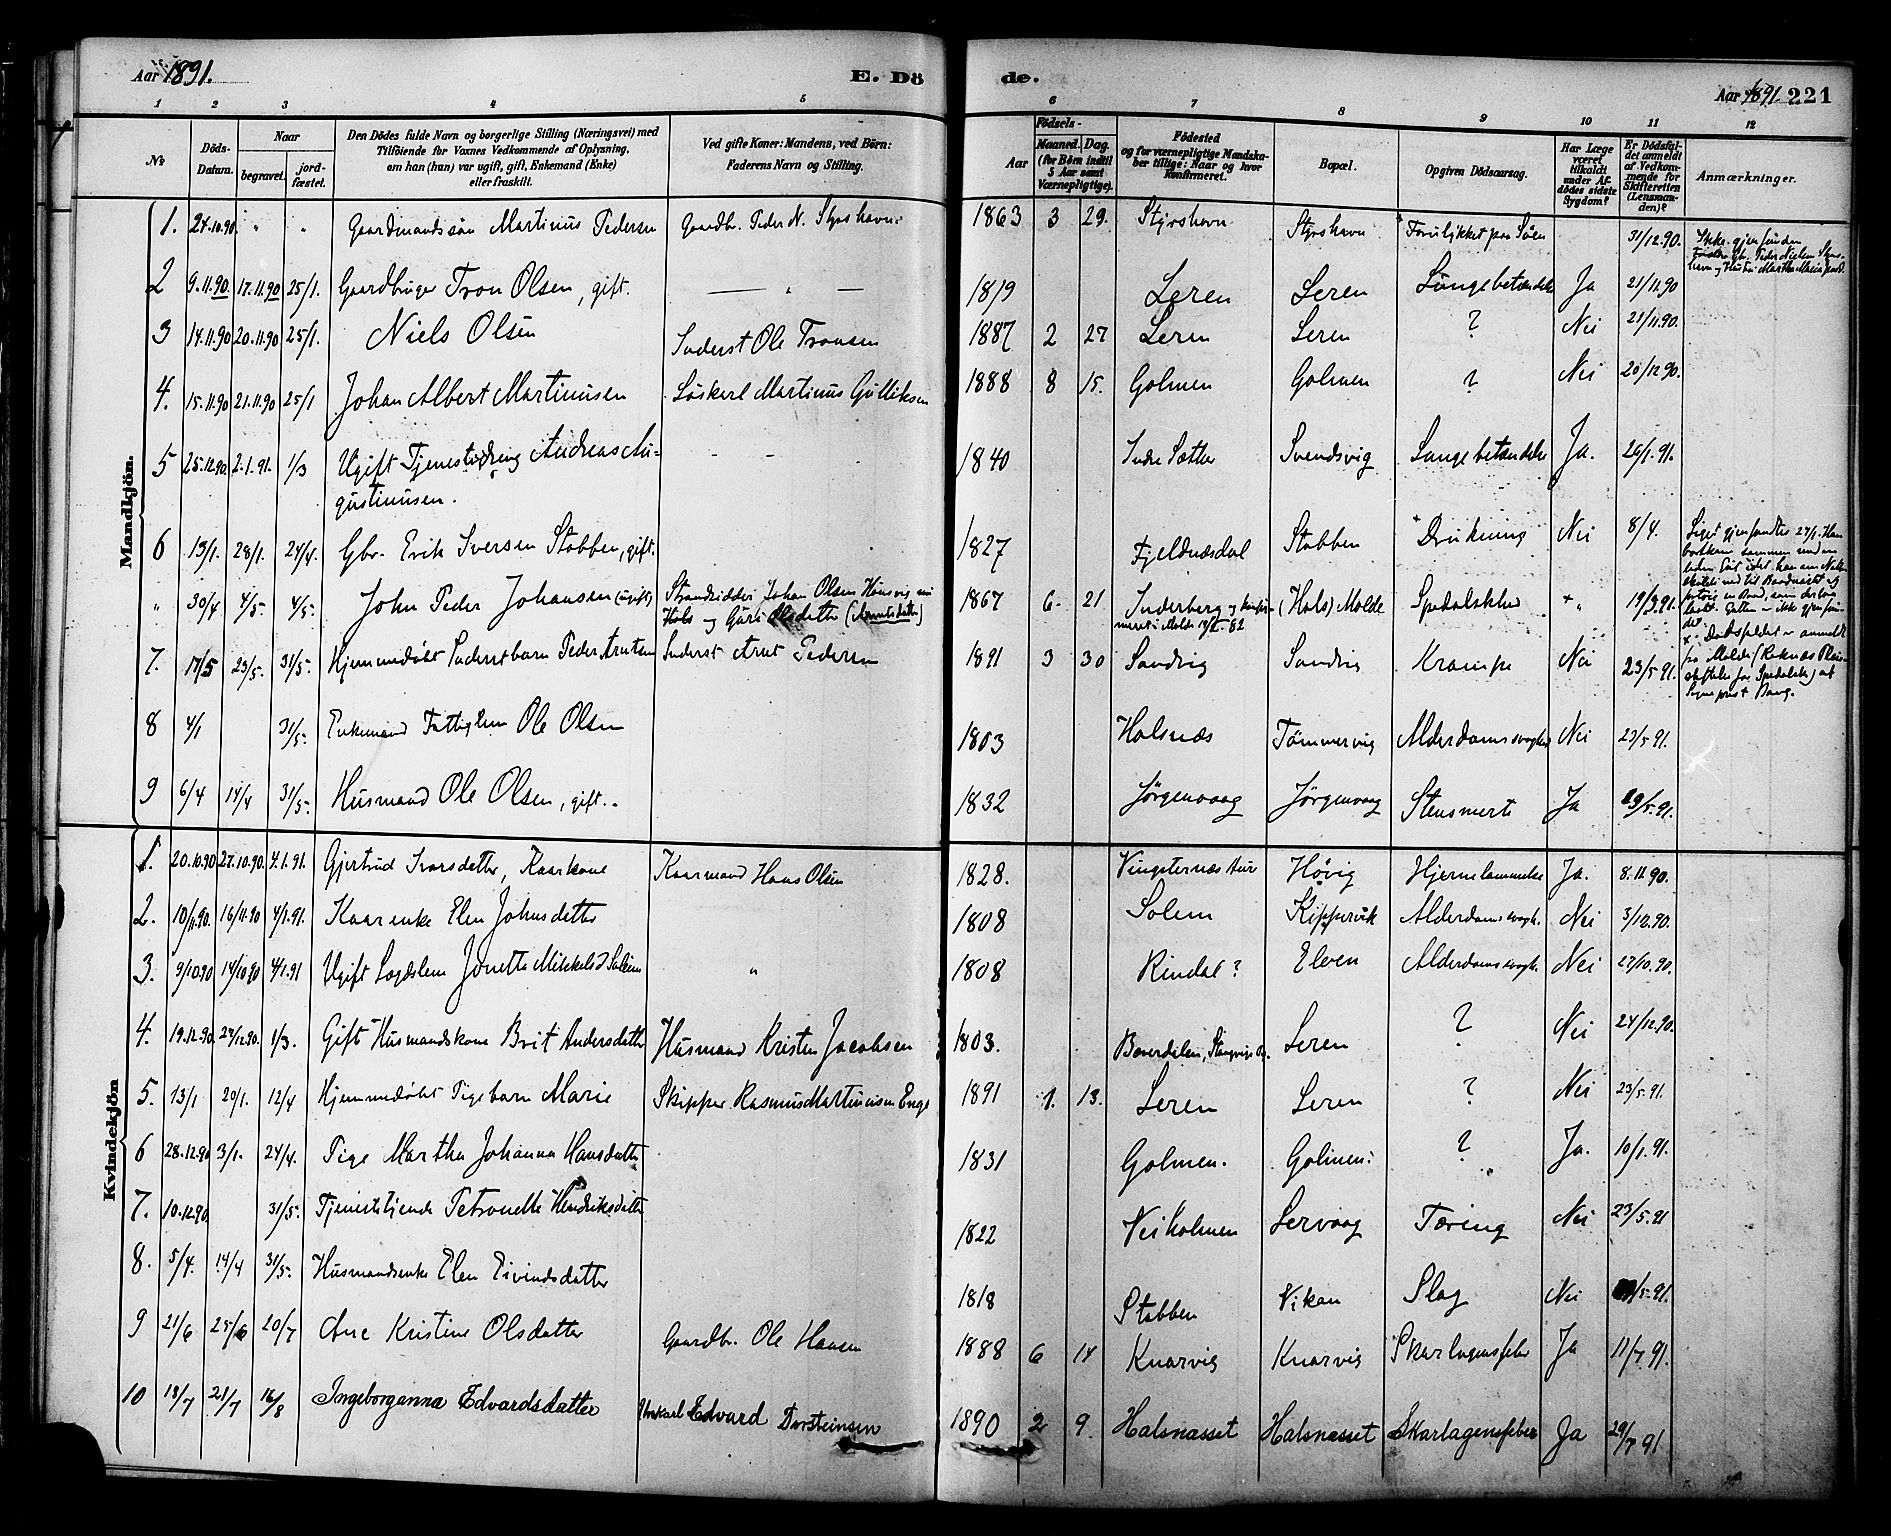 Aar 1891.
E. Dö
de.
Aar 1891. 221
1 2 3 4 5 6 7 8 9 10 11 12
№
Döds-
Datum.
Naar
begravet.
jord-
fæstet.
Den Dödes fulde Navn og borgerlige Stilling (Næringsvei) med
Tilföiende for Voxnes Vedkommende af Oplysning,
om han (hun) var ugift, gift, Enkemand (Enke)
eller fraskilt.
Ved gifte Koner: Mandens, ved Börn:
Faderens Navn og Stilling.
Födsels-
Aar
Maaned. Dag.
(for Börn indtil
5 Aar samt
Værnepligtige).
Födested
og for værnepligtige Mandska-
ber tillige: Naar og hvor
konfirmeret.
Bopæl.
Opgiven Dödsaarsag.
Har Læge
været
tilkaldt
under Af-
dödes sidste
Sygdom?
Er Dödsfal-
det anmeldt
af Vedkom-
mende for
Skifteretten
(Lensman-
den)?
Anmærkninger.
Mandkjön.
1. 24.10.90. " " Gaardmandssön Martinus Pedersen Gaardbr. Peder N. Styrshavn. 1863 3 29. Styrshavn Styrshavn Forulykket paa Söen 31/12.90. Ikke gjenfunden
2 9.11.90 17.11.90 25/1. Gaardbruger Tron Olsen, gift. — " — 1819 Leren Leren Lungebetændelse Ja 21/11.90
3 14.11.90 20.11.90 25/1. Niels Olsen Inderst Ole Tronsen 1887 2 27 Leren Leren ? Nei 21/11.90.
4. 15.11.90 21.11.90 25/1 Johan Albert Martinusen Löskarl Martinus Gulliksen 1888 8 15. Golmen Golmen ? Nei 20/12.90.
5 25.12.90 2.1.91. 1/3 Ugift Tjenestedreng Andreas Au-
gustinusen. - - 1840 Indre Sætter Svendsvig Lungebetændelse Ja. 26/1.91.
6 13/1. 28/1. 24/4. Gbr. Erik Iversen Stobben, gift. 1827 Fjeldnæsdal Stobben Drukning Nei 8/4.
" 30/4 4/5. 4/5. John Peder Johansen (ugift) Strandsidder Johan Olsen Hönsvig
Hals og Guri Olsdatter 1867 6. 21 Inderberg og konfir-
meret i Molde (Hals) Molde Spedalskhed 19/8.91.
7. 17/5 23/5. 31/5. Hjemmedöbt Inderstbarn Peder Arntsen Inderst Arnt Pedersen 1891 3 30 Sandvig Sandvig Krampe Nei 23/5 91.
8 4/1 31/5. Enkemand Fattiglem Ole Olsen 1803 Halsnæs Tömmervig Alderdomssvaghed Nei 23/5 91.
9 6/4 14/4 31/5. Husmand Ole Olsen, gift. 1832 Jørgenvaag Jørgenvaag Stensmerte Ja /5.91.
Kvindekjön
1. 20.10.90 27.10.90. 4.1.91. Gjertrud Ivarsdatter, Kaarkone Kaarmand Hans Olsen 1828. Vingsternæs Aur Høvig Hjernelammelse Ja. 8.11.90.
2. 10/11.90. 16/11.90 4/1.91. Kaarenke Elen Johnsdatter 1808 Solem Kippervik Alderdomssvagh. Nei 3/12.90.
3. 9/10.90 14/10.90 4/1.91 Ugift Lægdslem Jonetta Mikkelsd. " 1808 Rindal? Elven Alderdomssvagh. Nei 27/10.90.
4. 19.12.90. 29/12.90. 1/3. Gift Husmandskone Brit Andersdatter Husmand Kristen Jacobsen 1803. Bæverdalen, Stangvig Leren ? Nei 24/12.90.
5. 13/1 20/1. 12/4 Hjemmedöbt Pigebarn Marie Skipper Rasmus Martinusen Enge 1891 1. 13. Leren Leren ? Nei 23/5.91.
6 28.12.90 3/1. 24/4. Pige Martha Johanna Hansdatter 1831 Golmen. Golmen. ? Ja. 10/1.91.
7. 10.12.90. 31/5. Tjenestetjende Petronelle Hendriksdatter 1822 Veiholmen Lervaag Tæring Nei 23/5.91
8. 5/4. 14/4 31/5. Husmandsenke Elen Eivindsdatter 1818 Stobben Vikan Slag Nei /5.91.
9 21/6 25/6 20/7 Ane Kristine Olsdatter Gaardbr. Ole Hansen 1888 6 14 Knarvig Knarvig Skarlagensfeber Ja 11/7.91.
10 18/7 21/7 16/8 Ingeborganna Edvardsdatter Edvard Torsteinsen 1890 2 9. Halsnasset Halsnesset Skarlagensfeber Ja 29/7 91